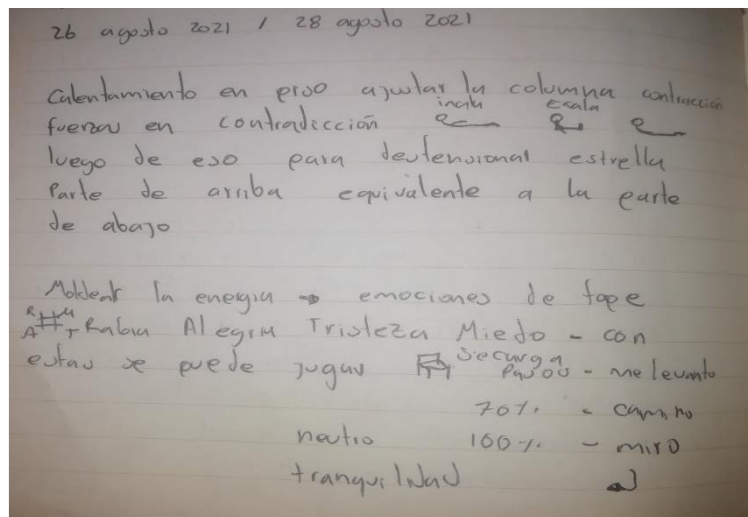 26 agosto 2021 / 28 agosto 2021
Calentamiento en piso ajustar la columna contracción
fuerzas en contradicción
luego de eso para destensionar estrella
Parte de arriba equivalente a la parte
de abajo
Moldear la energia → emociones de tope
R M A T Rabia Alegria Tristeza Miedo - con
estas se puede jugar
Pasos - me levanto
70% - camino
neutro 100% - miro
tranquilidad